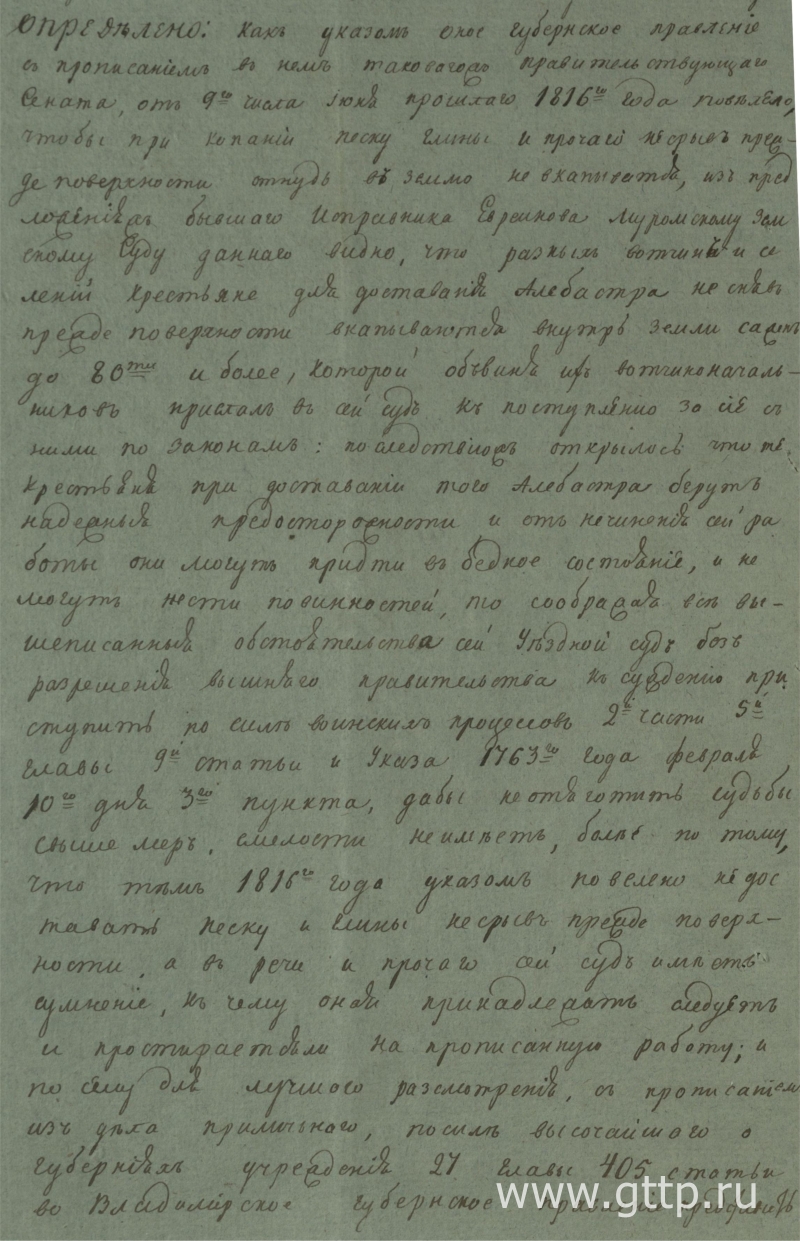 ОПРЕДѢЛЕНО: какъ указомъ оное губернское правленіе
съ прописаніемъ въ немъ таковагожъ правительствующаго
Сената, отъ 9го числа іюня прошлаго 1816го года повѣлело,
чтобы при копаніи песку глины и прочаго несрывъ преж-
де поверхности отнудь въ землю не вкапыватся, изъ пред
ложеніяхъ бывшаго Исправника Евреинова Муромскому Зем
скому Суду даннаго видно, что разныхъ вотчинъ и се
леній крестьяне для доставанія Алебастра не снявъ
прежде поверхности вкапываются внутрь земли саженъ
до 80ти и более, которой объвиня ихъ вотчиноначаль-
никовъ прислалъ въ сей судъ къ поступлению за сіе съ
ними по законамъ: последствіюжъ открылось что те
крестьяня при доставаніи того Алебастра берутъ
надежныя предосторожности и отъ нечиненія сей ра
боты они могутъ придти въ бедное состояніе, и не
могутъ нести повинностей, то соображая все вы-
шеписанныя обстоятельства сей Уѣздной судъ безъ
разрешенія вышняго правительства къ сужденію при
ступить по силѣ воинскихъ процессовъ 2й части 5й
главы 9й статьи и Указа 1763го года февраля
10го дня 3го пункта, дабы неотяготить судьбы
свыше меръ, смелости неимѣетъ, болѣе по тому,
что темъ 1816го года указомъ повелено не дос
тавать песку и глины несрывъ прежде поверх-
ности, а въ речи и прочаго сей судъ имѣетъ
сумненіе, къ чему оная принадлежать следуетъ
и простираетсяли на прописанную работу; и
по сему для лучшаго разсмотренія, съ прописаніем
изъ дѣла приличнаго, посилѣ высочайшаго о
губерніяхъ учрежденія 27 главы 405 статьи
во Владимирское губернское
www.gttp.ru